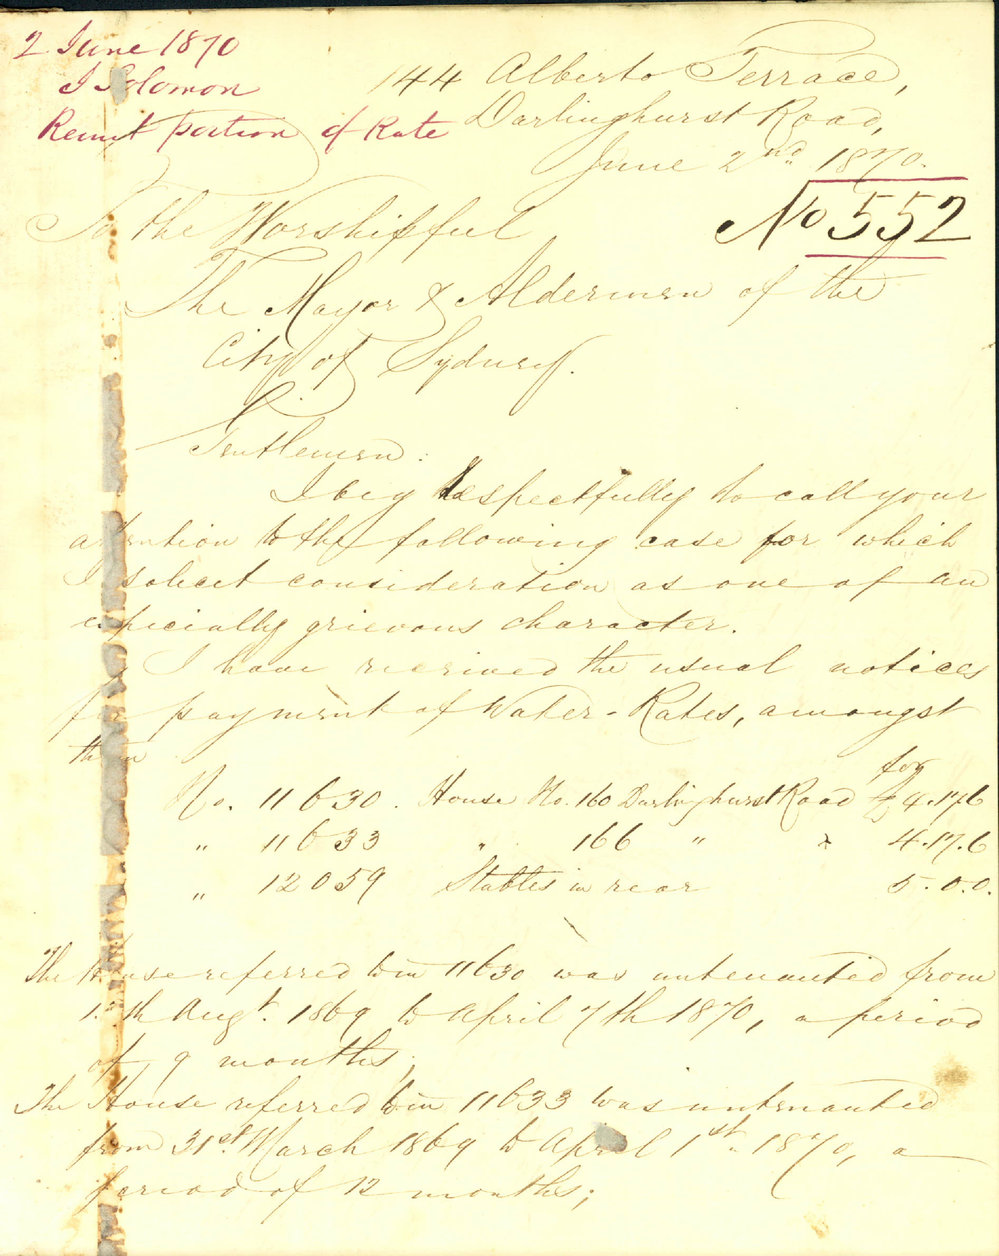 2 June 1870
J Solomon
Remit portion of Rate
144 Alberto Terrace,
Darlinghurst Road,
June 2nd. 1870.
No 552
To the Worshipful
The Mayor & Aldermen of the
City of Sydney.
Gentlemen.
I beg Respectfully to call your
attention to the following case for which
I solicit consideration as one of an
especially grievous character.
I have received the usual notices
for payment of Water-Rates, amongst
them for
No. 11630. House No. 160 Darlinghurst Road £4.17.6
" 11633 " 166 " " 4.17.6
" 12059 Stables in rear 5.0.0.
The House referred to in 11630 was untenanted from
th Augt. 1869 to April 7th 1870, a period
of 9 months,
The House referred to in 11633 was untenanted
from 31st March 1869 to April 1st. 1870, a
period of 12 months;